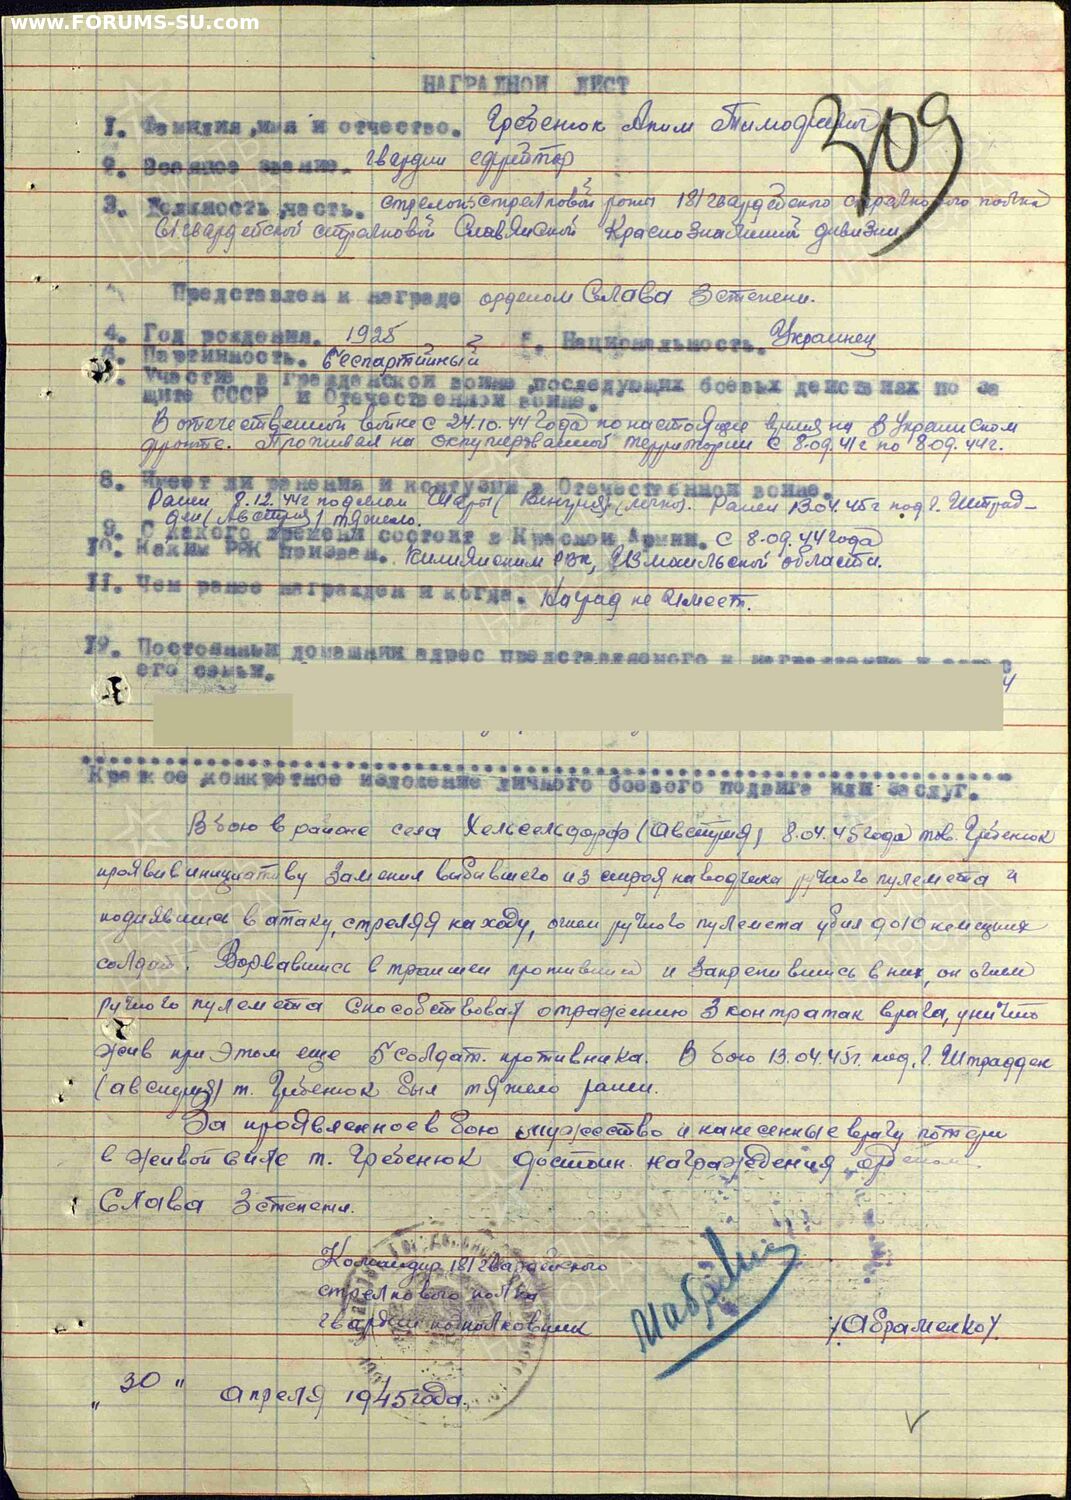 www.FORUMS-SU.com
НАГРАДНОЙ ЛИСТ
309
1. Фамилия, имя и отчество. Гребенюк Аким Тимофеевич
2. Военное звание. гвардии ефрейтор
3. Должность, часть. стрелок стрелковой роты 181 гвардейского стрелкового полка
61 гвардейской стрелковой Славянской Краснознаменной дивизии
Представлен к награде орденом Слава 3 степени.
4. Год рождения. 1925 5. Национальность. Украинец
6. Партийность. беспартийный
Участие в Гражданской войне, последующих боевых действиях по за
щите СССР и Отечественной войне.
В отечественной войне с 24.10.44 года по настоящее время на 3 Украинском
фронте. Проживал на оккупированной территории с 8.09.41 с по 8.09.44 г.
8. Имеет ли ранения и контузии в Отечественной войне.
Ранен 8.12.44г под селом (Венгрия) (легко). Ранен 13.04.45г под г. Штрад-
ден (Австрия) тяжело.
9. С какого времени состоит в Красной Армии. С 8.09.44 года
10. Каким РВК призван. Килийским РВК, Измаильской области.
11. Чем ранее награжден и когда. Наград не имеет.
12. Постоянный домашний адрес представляемого к награждению и адрес
его семьи.
Краткое, конкретное изложение личного боевого подвига или заслуг.
В бою в районе села Хельсельдорф (Австрия) 8.04.45 года тов. Гребенюк
проявив инициативу заменил выбившего из строя наводчика ручного пулемета и
поднявшись в атаку, стреляя на ходу, огнем ручного пулемета убил до 10 немецких
солдат. Ворвавшись в траншеи противника и закрепившись в них, он огнем
ручного пулемета способствовал отражению 3 контратак врага, уничто
жив при этом еще 5 солдат противника. В бою 13.04.45г. под г. Штрадден
(австрия) т. Гребенюк был тяжело ранен.
За проявленное в бою мужество и нанесенные врагу потери
в живой силе т. Гребенюк достоин награждения орденом
Слава 3 степени.
Командир 181 гвардейского
стрелкового полка
гвардии подполковник /Абраменко/.
"30" апреля 1945 года.